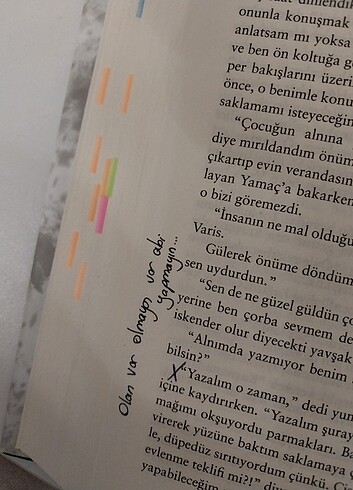 onunla konuşmak
anlatsam mı yoksa
ve ben ön koltuğa
per bakışlarını
önce, o benimle
saklamamı isteyeceğin
"Çocuğun alnına
diye mırıldandım
çıkartıp evin verandasın
layan Yamaç'a bakarken
o bizi göremezdi.
"İnsanın ne mal olduğu
Varis.
Gülerek önüme döndüm
sen uydurdun."
"Sen de ne güzel güldün
yerine ben çorba sevmem de
iskender olur diyecekti yavşak
"Alnımda yazmıyor benim
bilsin?"
"Yazalım o zaman," dedi
içine kaydırırken. "Yazalım
mağımı okşuyordu parmakları.
virerek yüzüne baktım saklamaya
le, düpedüz sırıtıyordum çünkü.
evlenme teklifi mi?!"
yapabileceğim
Olan var olmayan var abi
yapmayın...